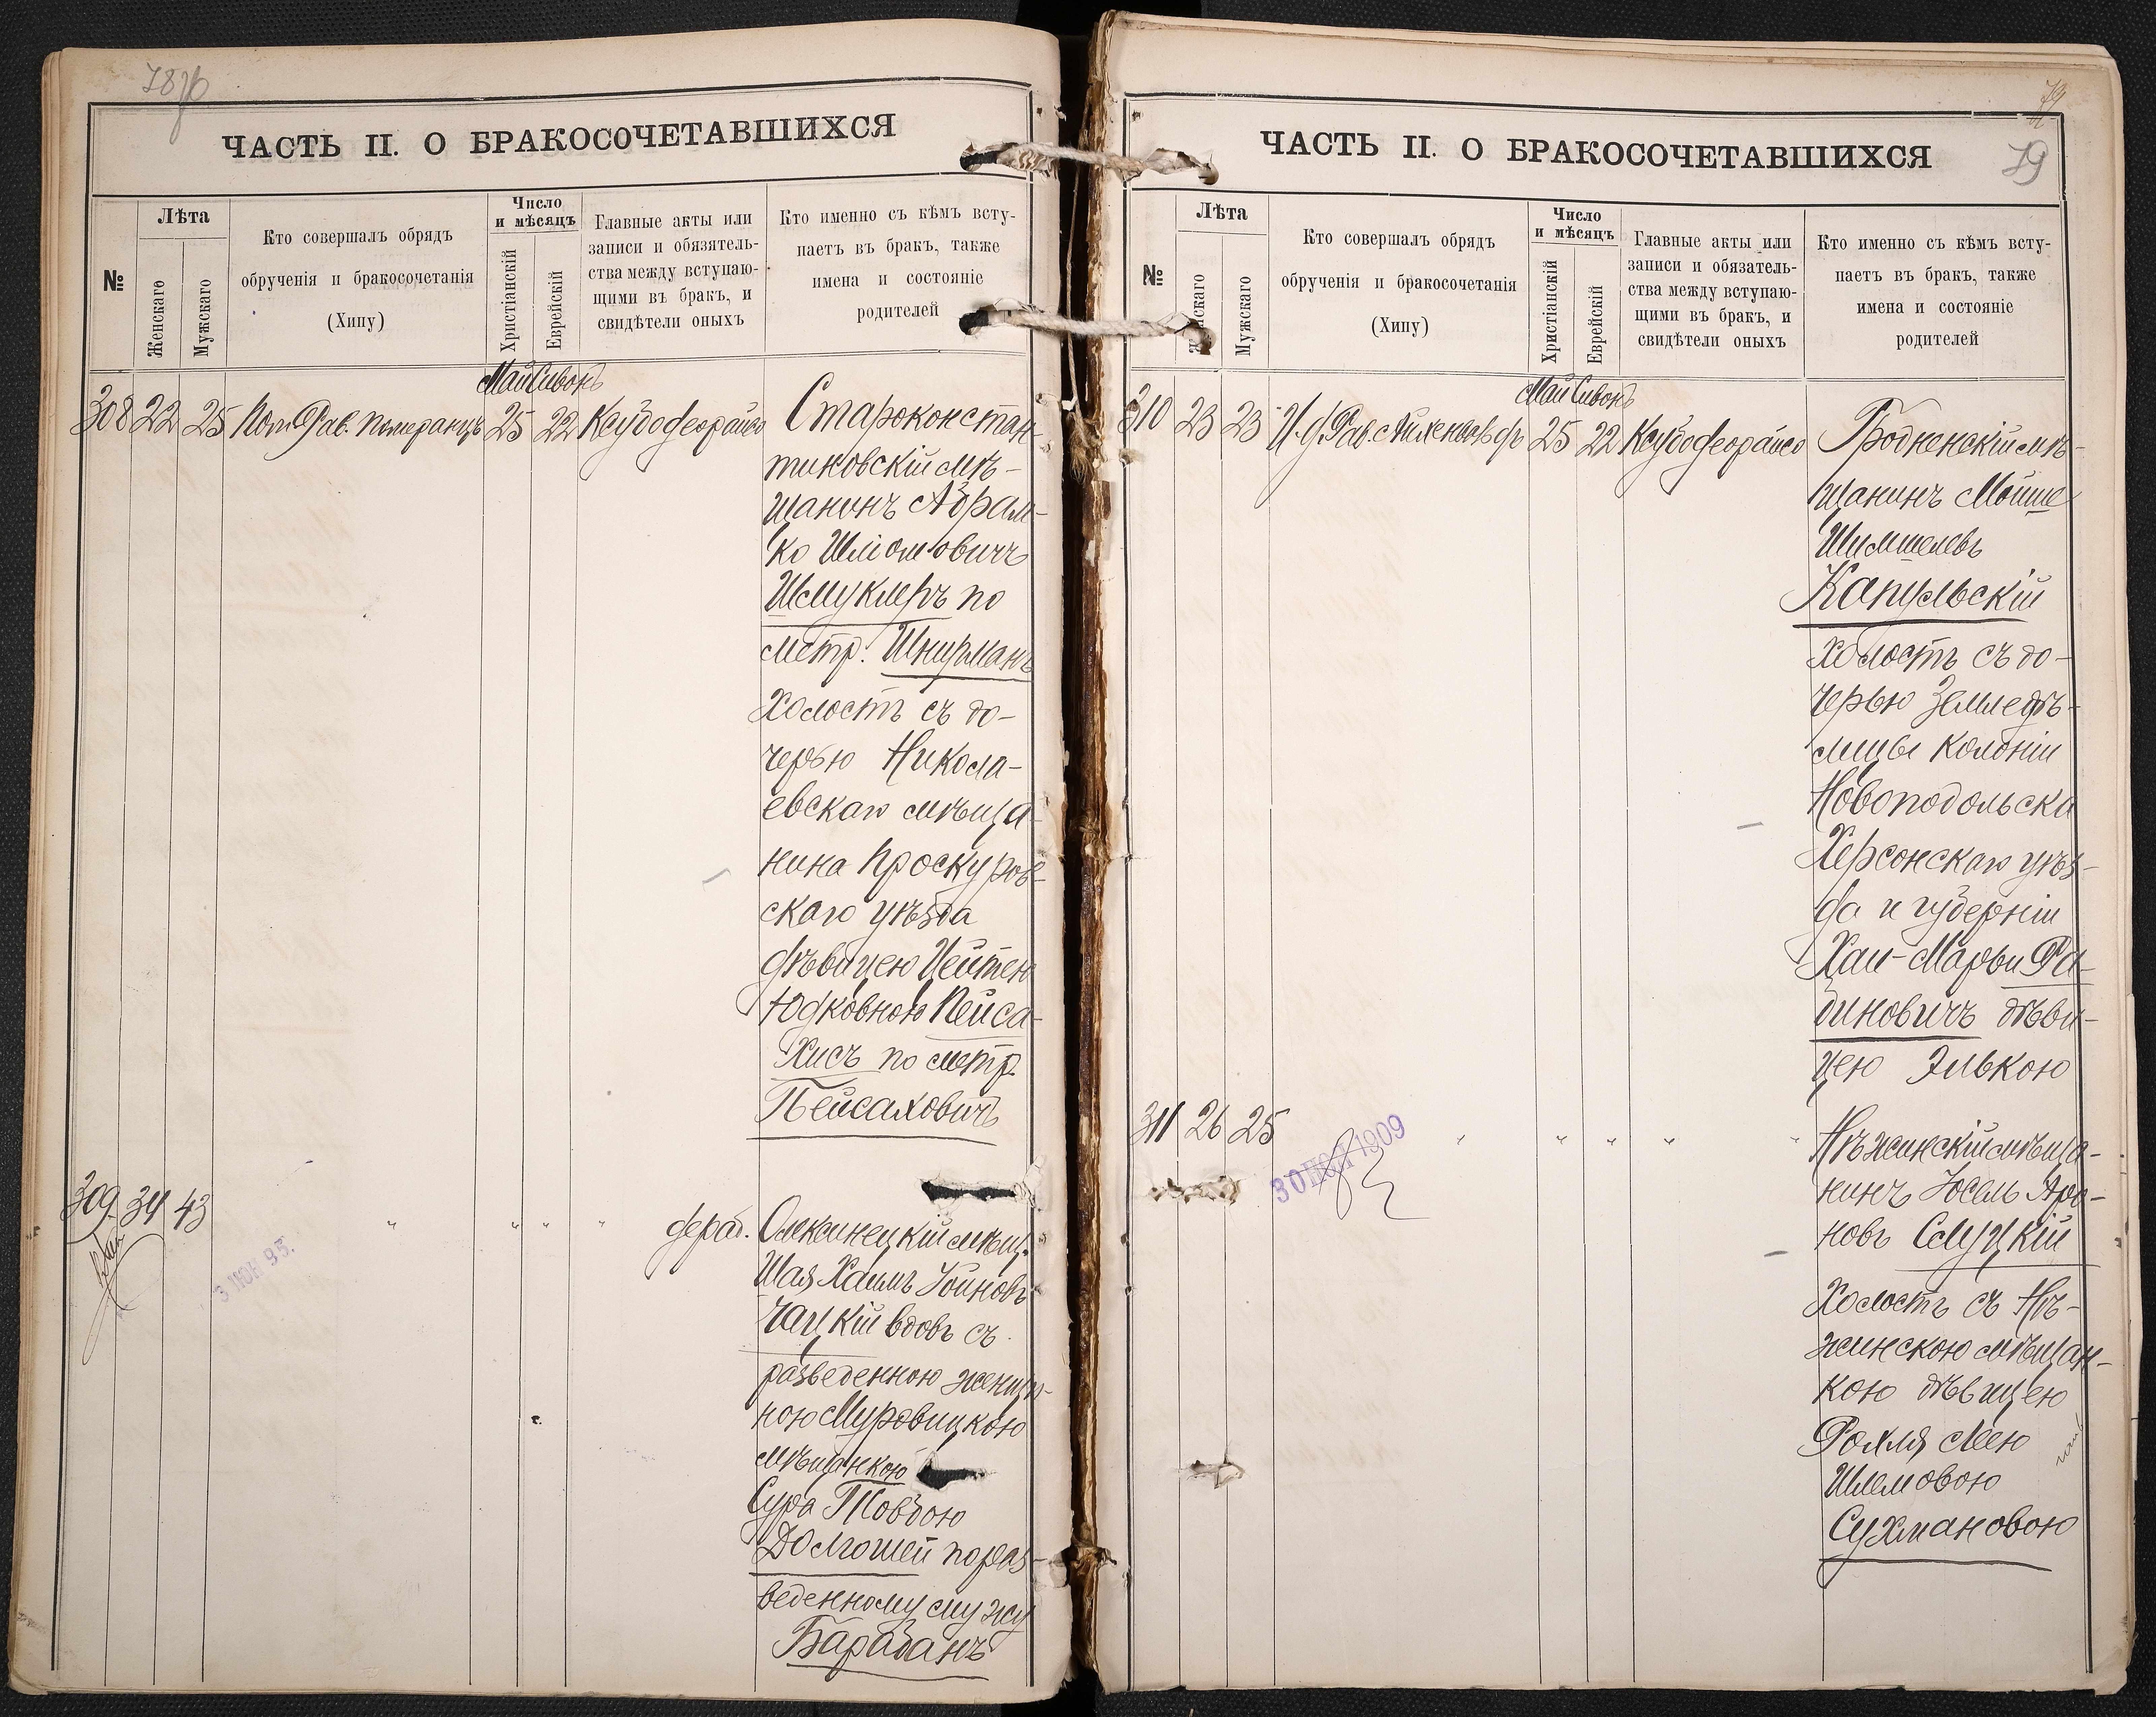 78
ЧАСТЬ II. О БРАКОСОЧЕТАВШИХСЯ
№
Лѣта
Женскаго
Мужскаго
Кто совершалъ обрядъ
обрученія и бракосочетанія
(Хипу)
Число
и мѣсяцъ
Христіанскій
Еврейскій
Главные акты или
записи и обязатель-
ства между вступаю-
щими въ бракъ, и
свидѣтели оныхъ
Кто именно съ кѣмъ всту-
паетъ въ бракъ, также
имена и состояніе
родителей
Май Сивонъ
308 22 25 Пом. Рав. Померанцъ 25 22 Ксубо деорайсо
Староконстан-
тиновскій мѣ-
щанинъ Абрам-
ко Шліомовичъ
Шмуклеръ по
метр. Шнурманъ
холостъ съ до-
черью Никола-
евскаго мѣща-
нина Проскуров-
скаго уѣзда
дѣвицею Цейтею
Юдковною Пейса-
хисъ по метр.
Пейсаховичъ
309 34 43 " " " " дераб.
3 ИЮН 95.
Олексинецкій мѣщ.
Шая Хаимъ Іоиновъ
Чацкій вдовъ съ
разведенною женщи-
ною Муровицкою
мѣщанкою
Сура Товбою
Долгошей по раз-
веденному мужу
Барабанъ
79
79
ЧАСТЬ II. О БРАКОСОЧЕТАВШИХСЯ
№
Лѣта
Женскаго
Мужскаго
Кто совершалъ обрядъ
обрученія и бракосочетанія
(Хипу)
Число
и мѣсяцъ
Христіанскій
Еврейскій
Главные акты или
записи и обязатель-
ства между вступаю-
щими въ бракъ, и
свидѣтели оныхъ
Кто именно съ кѣмъ всту-
паетъ въ бракъ, также
имена и состояніе
родителей
Май Сивонъ
310 23 23 И. д. Рав. 25 22 Ксубо деорайсо
Гродненскій мѣ-
щанинъ Мойше
Шимшелевъ
Капульскій
холостъ съ до-
черью Земледѣ-
лицы колоніи
Новоподольска
Херсонскаго уѣз-
да и губерніи
Хаи-Марьи Ра-
биновичъ дѣви-
цею Элькою
311 26 25 " " " " "
1909
Нѣжинскій мѣща-
нинъ Іосель Аро-
новъ Слуцкій
холостъ съ Нѣ-
жинскою мѣщан-
кою дѣвицею
Рохля Леею
Шлемовою
Сухмановою